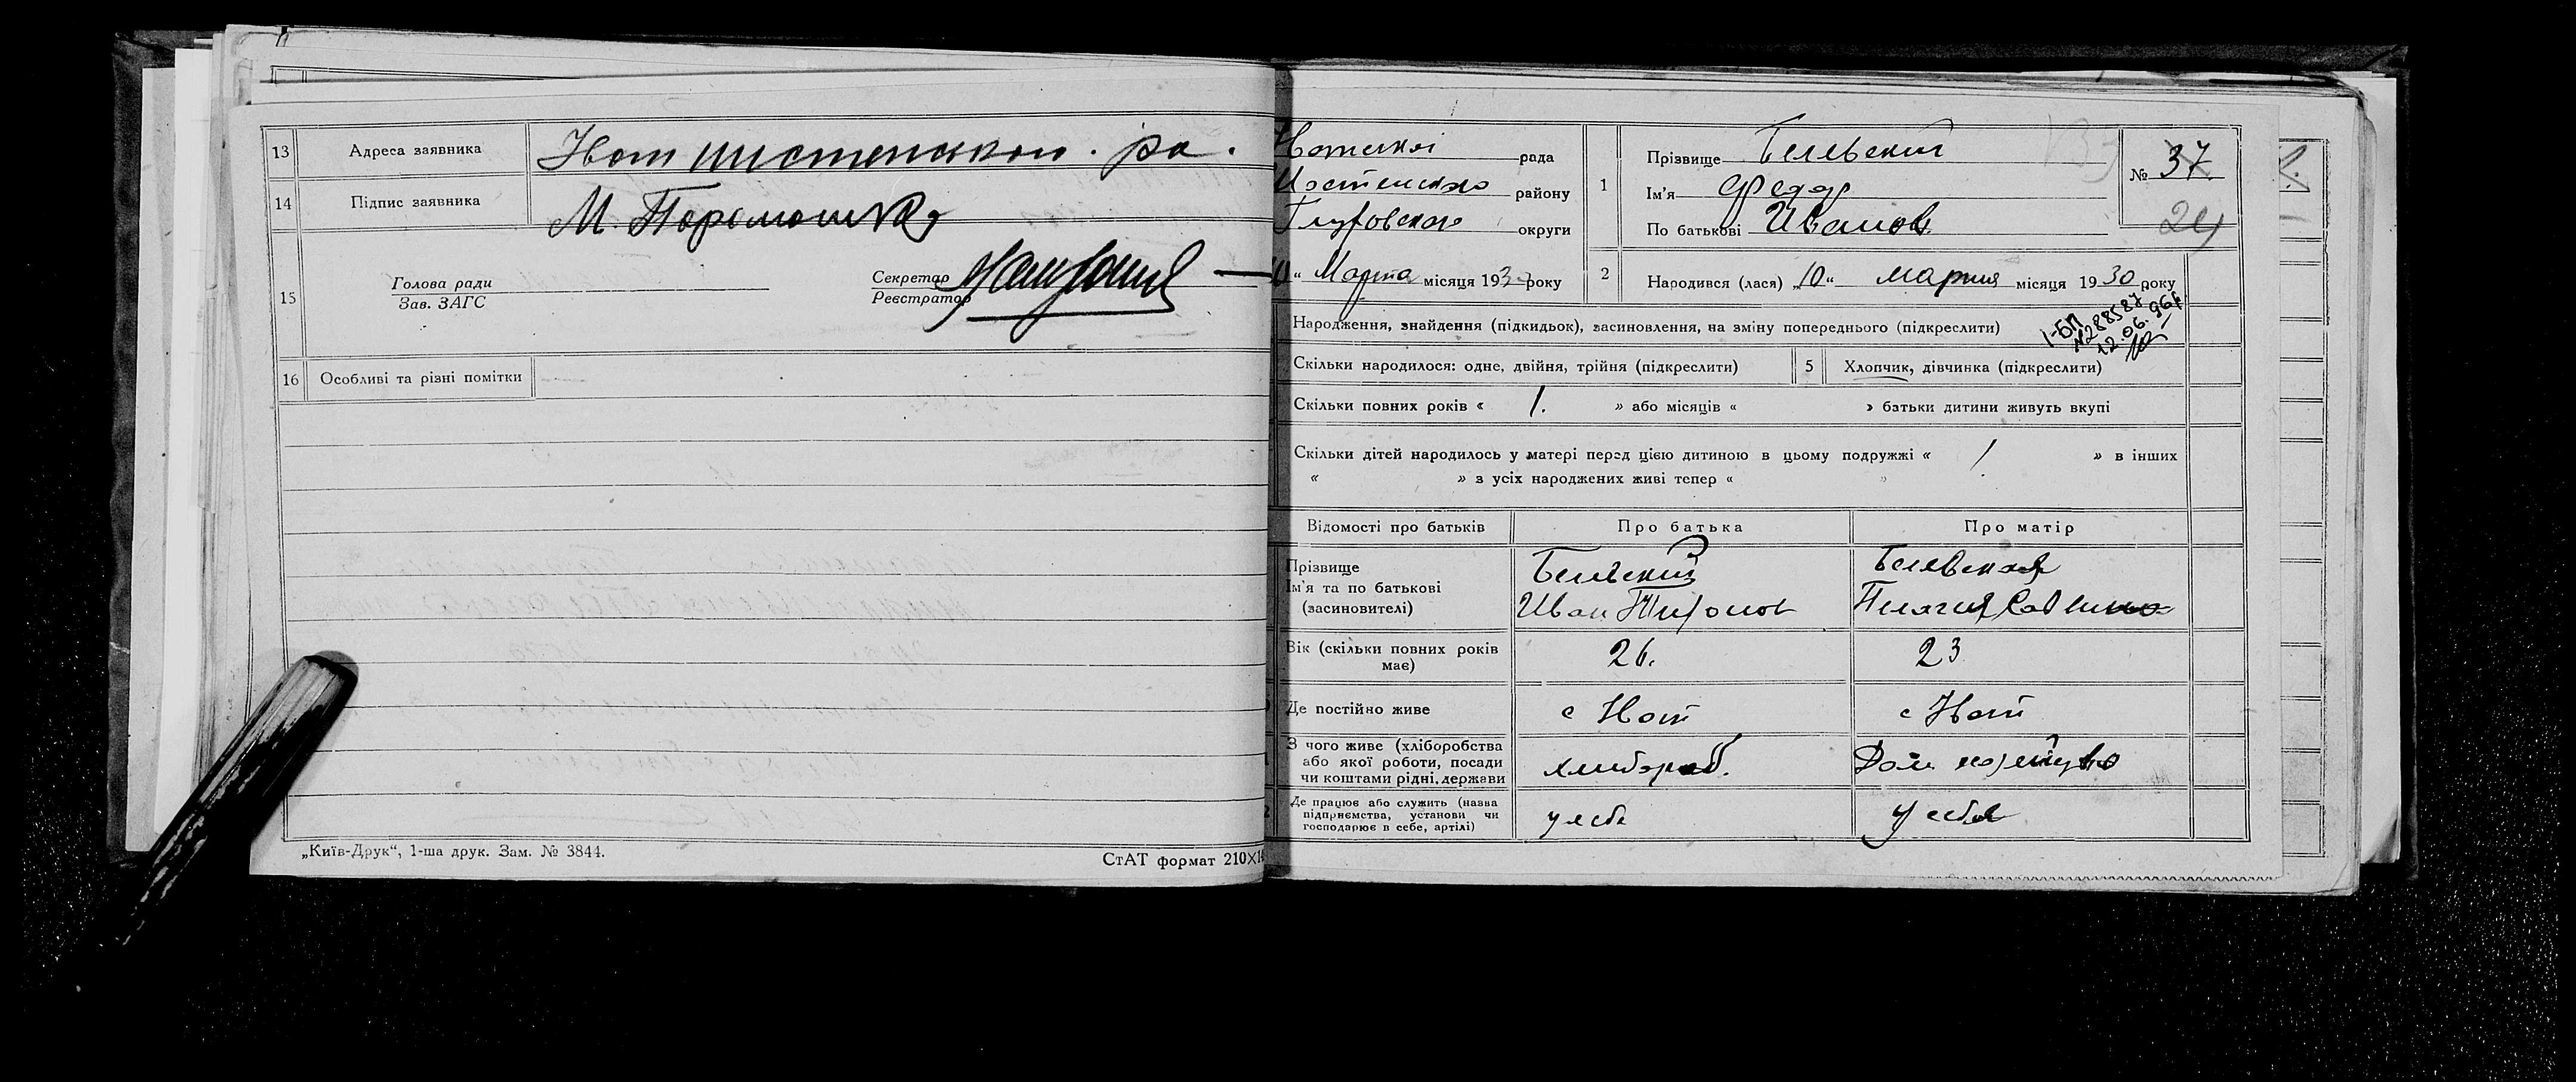 13 Адреса заявника
14 Підпис заявника
М. Парамошка
15 Голова ради
Зав. ЗАГС
Секретар
Реєстратор
16 Особливі та різні помітки
„Київ-Друк“, 1-ша друк. Зам. № 3844.
СтАТ формат 210×1
рада
району
округи
„ Марта місяця 193 року
1 Прізвище Бельский
Ім’я Федор
По батькові Иванов
№ 37.
24
2 Народився (лася) „10“ марта місяця 1930 року
1-БП
№288587
12.06.96г
Народження, знайдення (підкидьок), засиновлення, на зміну попереднього (підкреслити)
Скільки народилося: одне, двійня, трійня (підкреслити)
5 Хлопчик, дівчинка (підкреслити)
Скільки повних років « 1. » або місяців « » батьки дитини живуть вкупі
Скільки дітей народилось у матері перед цією дитиною в цьому подружжі « 1 » в інших
« » з усіх народжених живі тепер « »
Відомості про батьків
Про батька
Про матір
Прізвище
Ім’я та по батькові
(засиновителі)
Бельский
Иван Тихонов
Бельская
Пелагия
Вік (скільки повних років
має)
26.
23
Де постійно живе
с Хот
с Хот
З чого живе (хліборобства
або якої роботи, посади
чи коштами рідні, держави
хлибороб.
Дом
Де працює або служить (назва
підприємства, установи чи
господарює в себе, артілі)
у себе
у себя